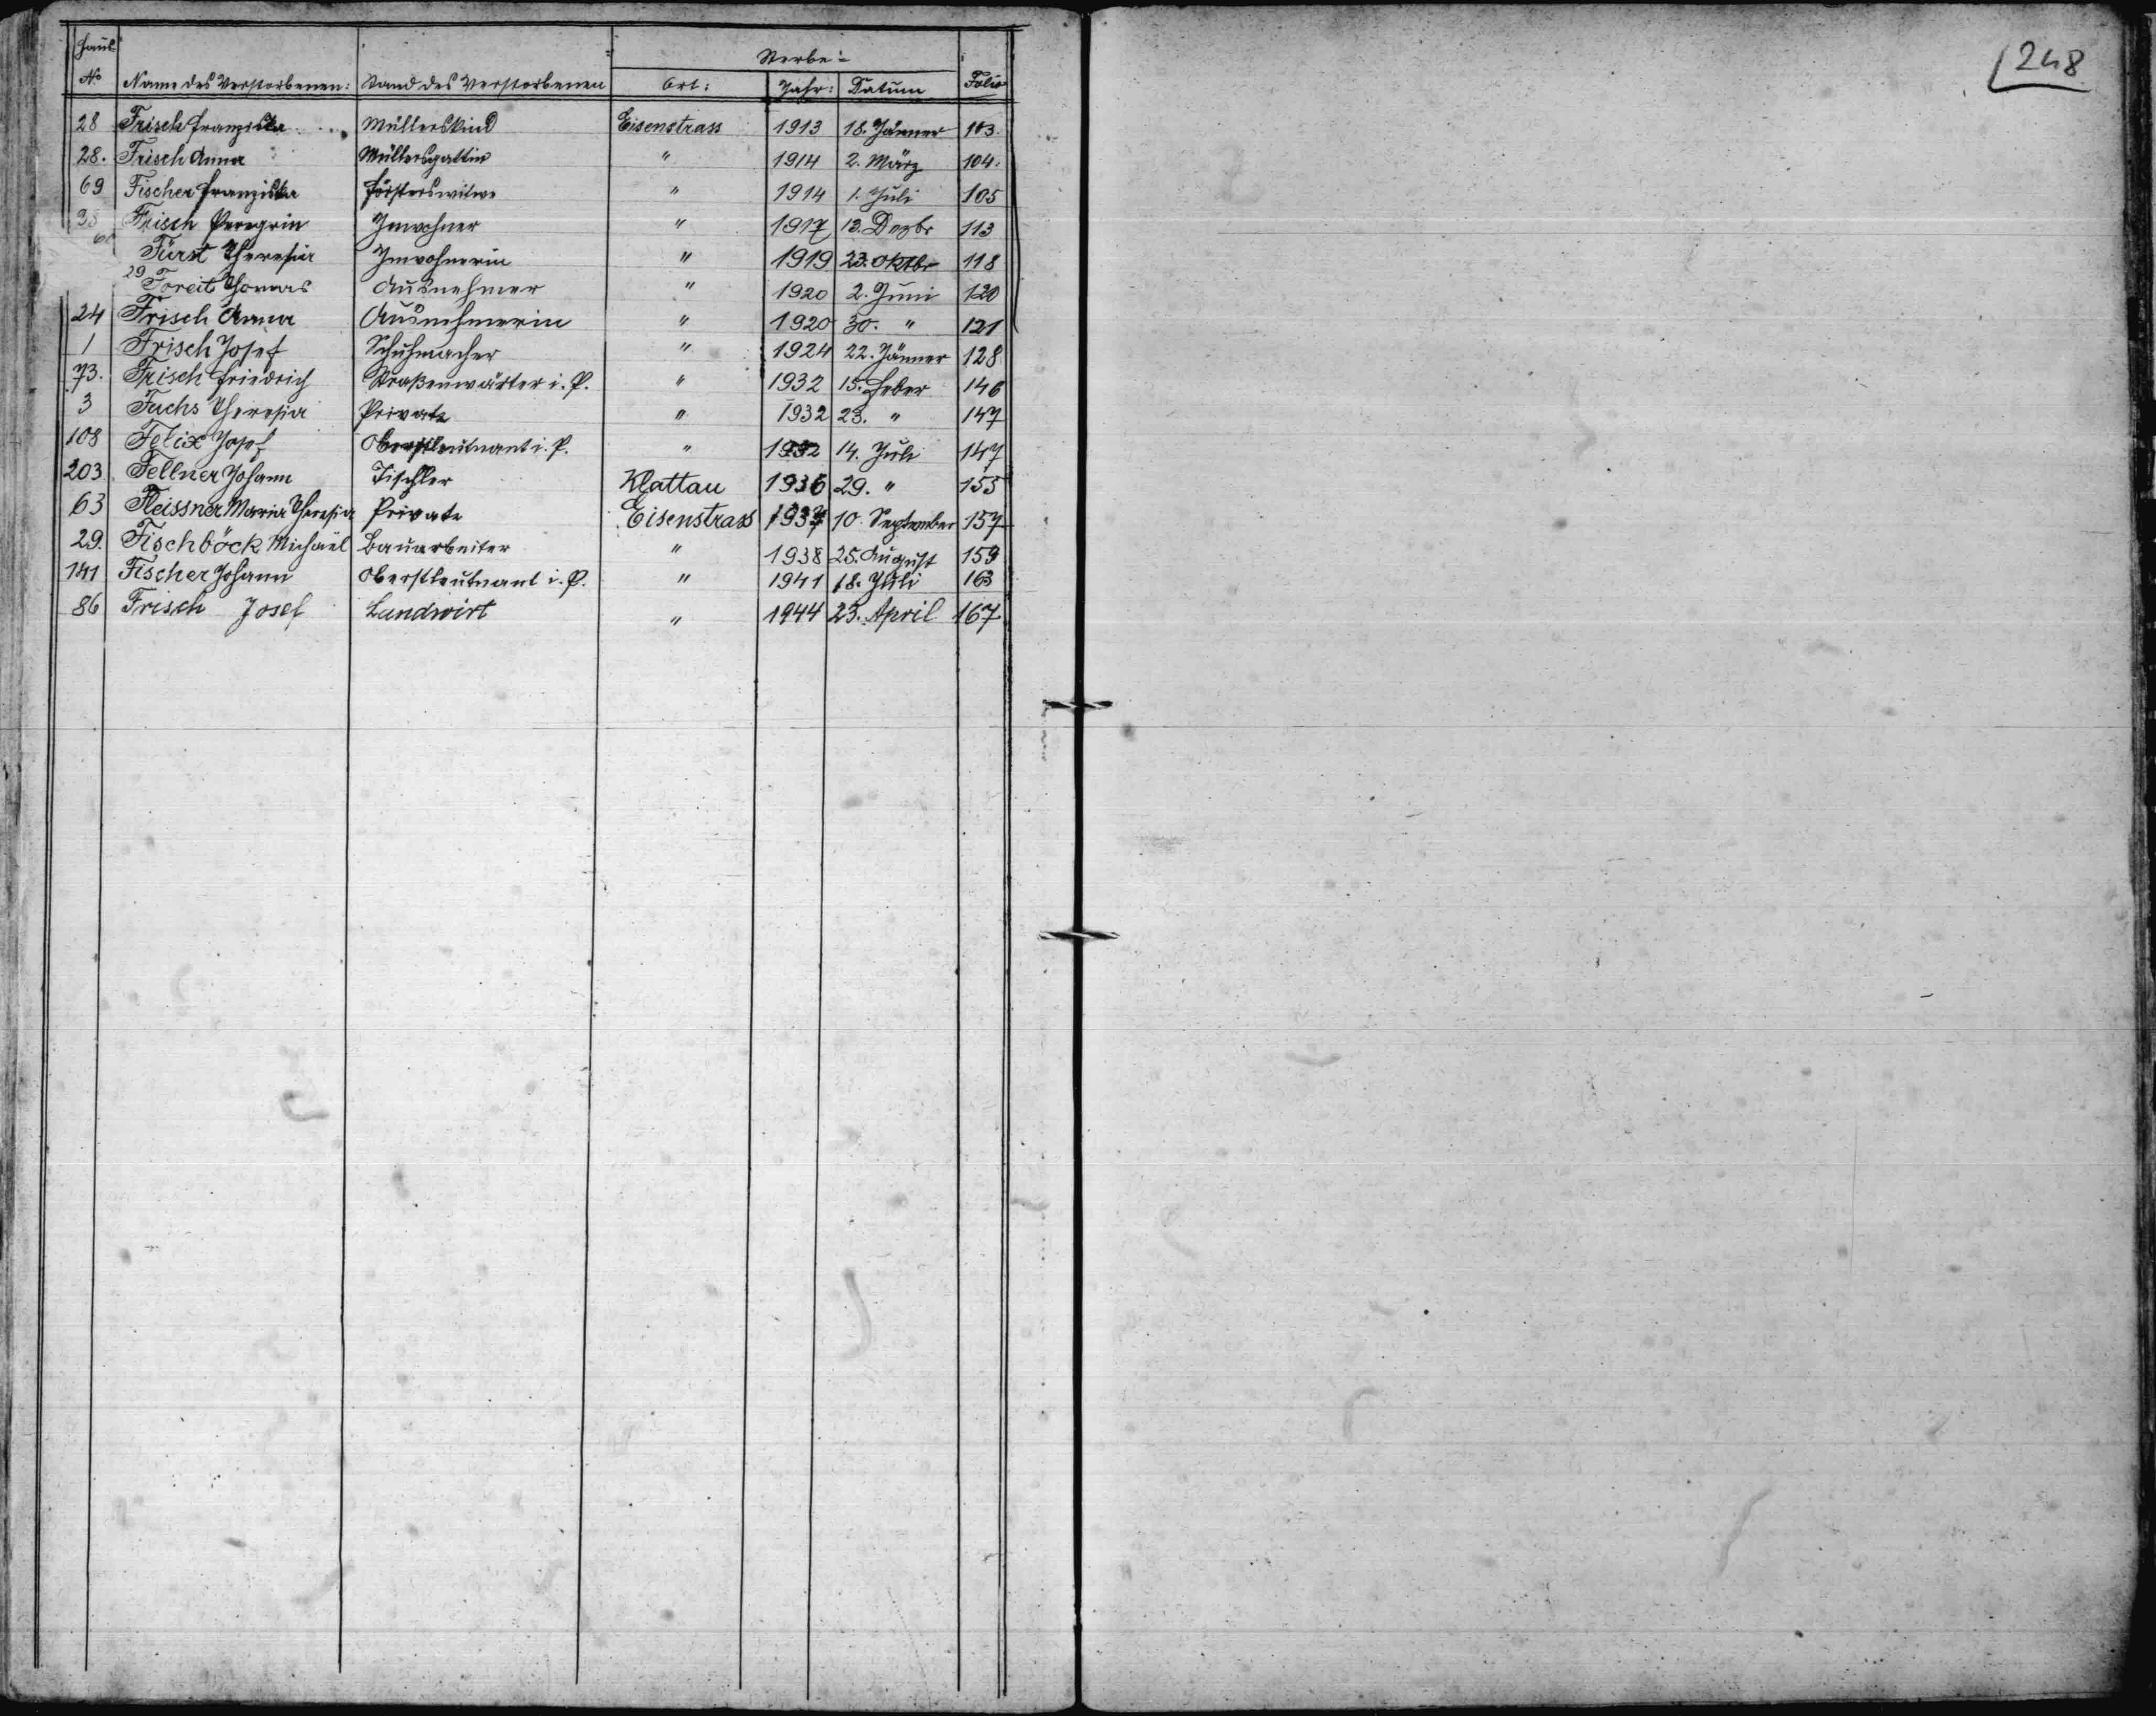 248
Haus
Sterbe-
No Name des Verstorbenen: Stand des Verstorbenen Ort: Jahr: Datum Folio
28 Frisch Franziska Müllerskind Eisenstrass 1913 18. Jänner 103.
28. Frisch Anna Müllersgattin " 1914 2. März 104.
69 Fischer Franziska Försterswitwe " 1914 1. Juli 105
28 Frisch Peregrin Inwohner " 1917 13. Dezbr 113
Fürst Theresia Inwohnerin " 1919 23. Oktbr 118
29 Foreit Thomas Ausnehmer " 1920 2. Juni 120
24 Frisch Anna Ausnehmerin " 1920 30. " 121
1 Frisch Josef Schuhmacher " 1924 22. Jänner 128
73. Frisch Friedrich Straßenwärter i. P. " 1932 15. Feber 146
3 Fuchs Theresia Private " 1932 23. " 147
108 Felix Josef Oberstleutnant i. P. " 1932 14. Juli 147
203 Fellner Johann Tischler Klattau 1936 29. " 155
63 Fleissner Maria Theresia Private Eisenstrass 1937 10. September 157
29. Fischböck Michael Bauarbeiter " 1938 25. August 159
141 Fischer Johann Oberstleutnant i. P. " 1941 18. Juli 163
86 Frisch Josef Landwirt " 1944 23. April 167